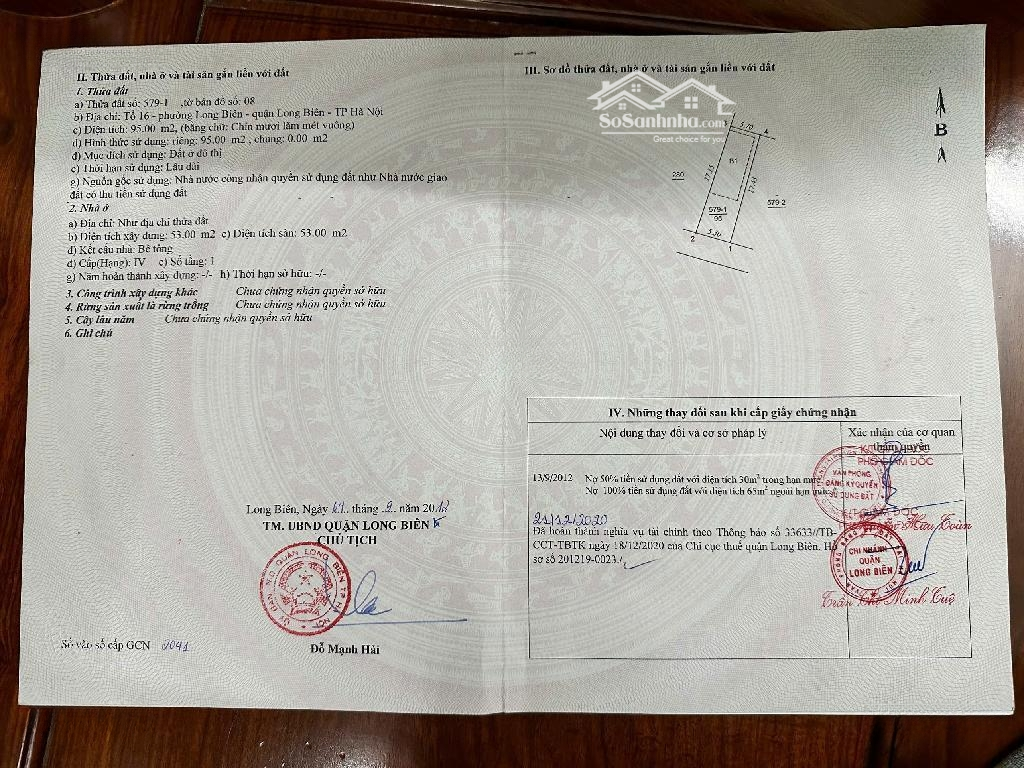 II. Thửa đất, nhà ở và tài sản gắn liền với đất
1. Thửa đất
a) Thửa đất số: 579-1 ,tờ bản đồ số: 08
b) Địa chỉ: Tổ 16 - phường Long Biên - quận Long Biên - TP Hà Nội
c) Diện tích: 95.00 m2, (bằng chữ: Chín mươi lăm mét vuông)
d) Hình thức sử dụng: riêng: 95.00 m2 , chung: 0.00 m2
đ) Mục đích sử dụng: Đất ở đô thị
e) Thời hạn sử dụng: Lâu dài
g) Nguồn gốc sử dụng: Nhà nước công nhận quyền sử dụng đất như Nhà nước giao
đất có thu tiền sử dụng đất
2. Nhà ở
a) Địa chỉ: Như địa chỉ thửa đất
b) Diện tích xây dựng: 53.00 m2 c) Diện tích sàn: 53.00 m2
d) Kết cấu nhà: Bê tông
đ) Cấp(Hạng): IV e) Số tầng: 1
g) Năm hoàn thành xây dựng: -/- h) Thời hạn sở hữu: -/-
3. Công trình xây dựng khác Chưa chứng nhận quyền sở hữu
4. Rừng sản xuất là rừng trồng Chưa chứng nhận quyền sở hữu
5. Cây lâu năm Chưa chứng nhận quyền sở hữu
6. Ghi chú
Long Biên, Ngày tháng 9 năm 2012
TM. UBND QUẬN LONG BIÊN
CHỦ TỊCH
Đỗ Mạnh Hải
Số vào sổ cấp GCN 2041
III. Sơ đồ thửa đất, nhà ở và tài sản gắn liền với đất
SoSanhnha.com
Great choice for you
B
5.70 4
B1
17.45
280
579-2
579-1
95
2
5.50
1
IV. Những thay đổi sau khi cấp giấy chứng nhận
Nội dung thay đổi và cơ sở pháp lý
Xác nhận của cơ quan
thẩm quyền
PHÓ GIÁM ĐỐC
13/9/2012 Nợ 50% tiền sử dụng đất với diện tích 30m2 trong hạn mức
Nợ 100% tiền sử dụng đất với diện tích 65m2 ngoài hạn mức
VĂN PHÒNG
ĐĂNG KÝ QUYỀN
SỬ DỤNG ĐẤT
21/12/2020
Đã hoàn thành nghĩa vụ tài chính theo Thông báo số 33633//TB-
CCT-TBTK ngày 18/12/2020 của Chi cục thuế quận Long Biên. Hồ
sơ số 201219-0023./.
GIÁM ĐỐC
Hữu Toàn
CHI NHÁNH
QUẬN
LONG BIÊN
Trần Minh Tuệ